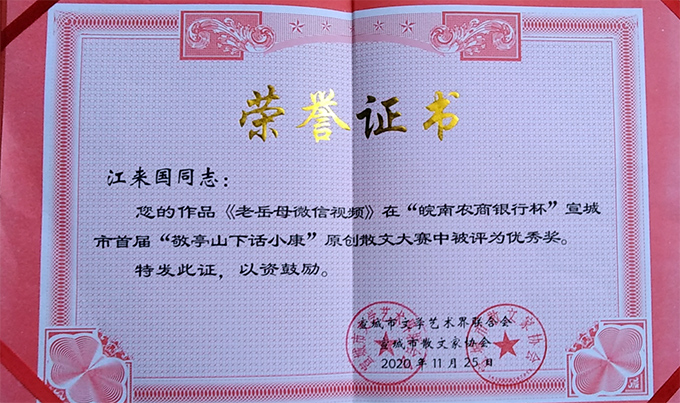 荣誉证书
江来国同志：
您的作品《老岳母微信视频》在“皖南农商银行杯”宣城
市首届“敬亭山下话小康”原创散文大赛中被评为优秀奖。
特发此证，以资鼓励。
宣城市文学艺术界联合会
宣城市散文家协会
2020年11月25日